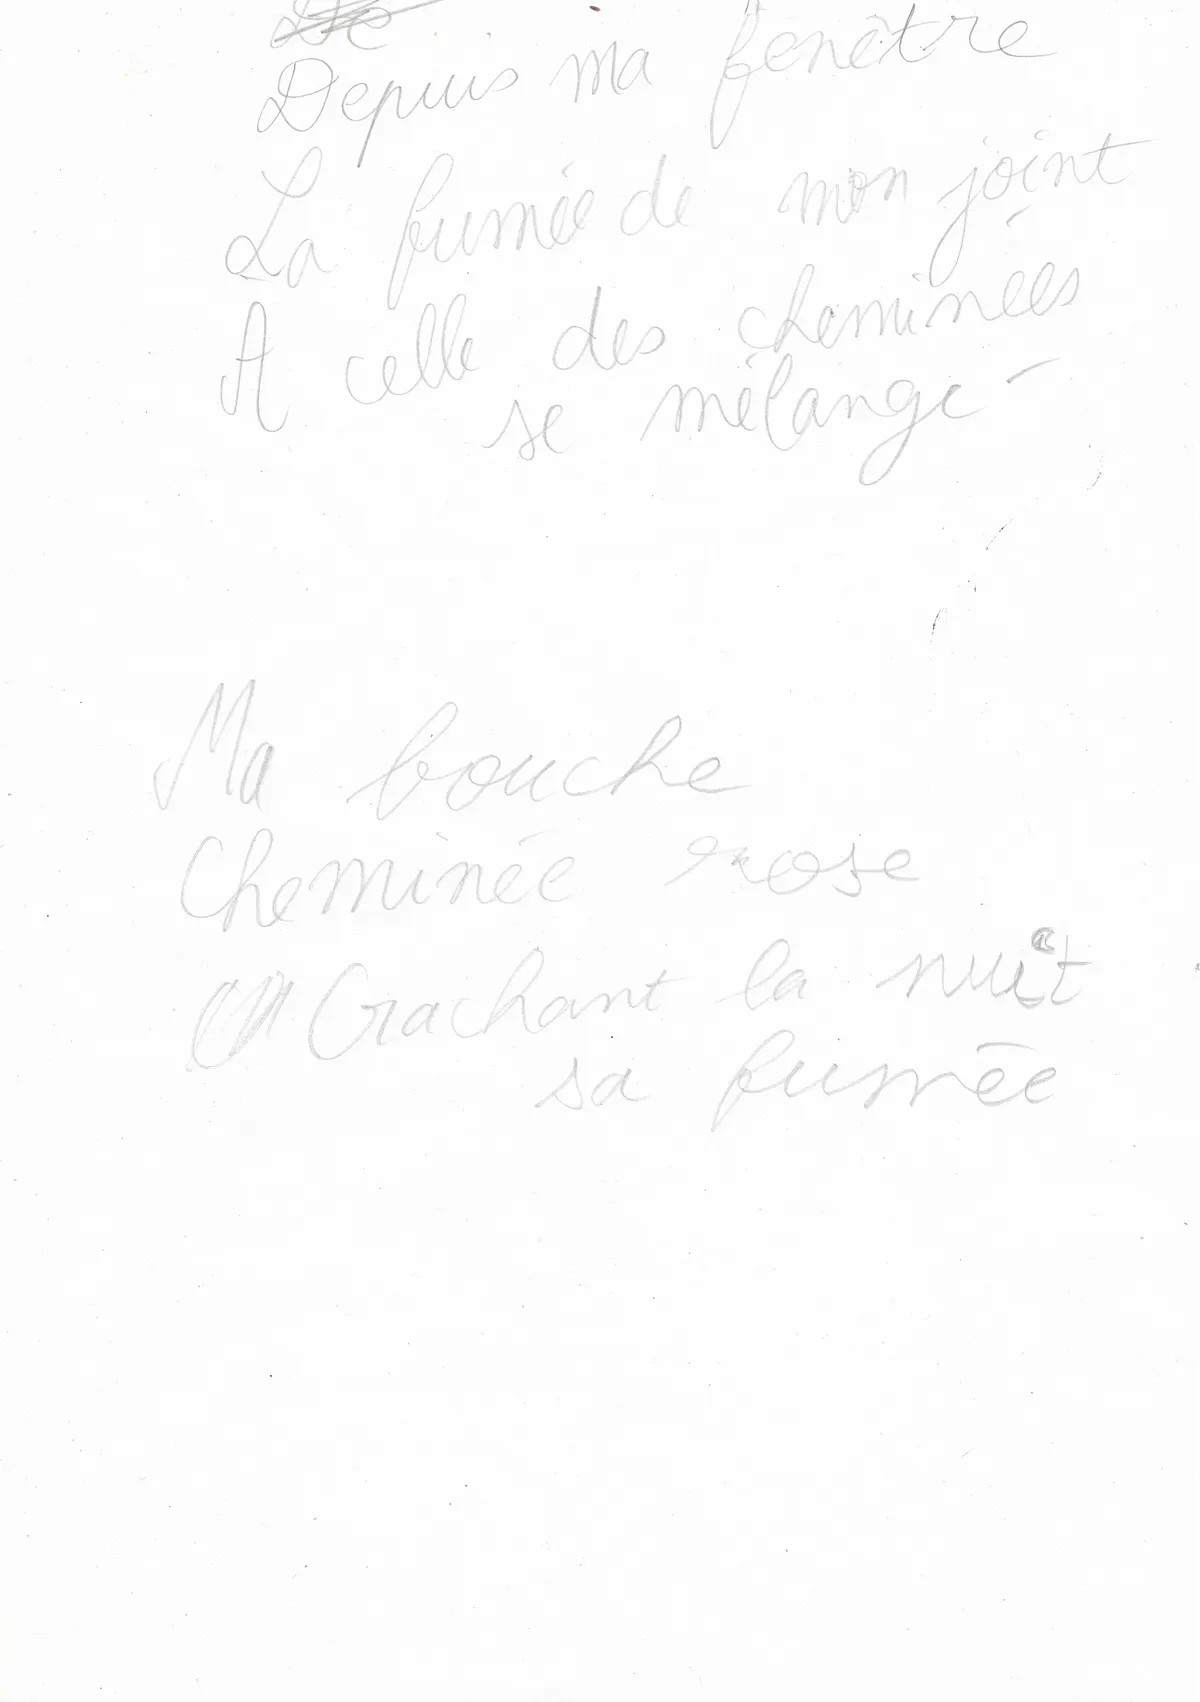 De
Depuis ma fenêtre
La fumée de mon joint
A celle des cheminées
se mélange
Ma bouche
Cheminée rose
Crachant la nuit
sa fumée